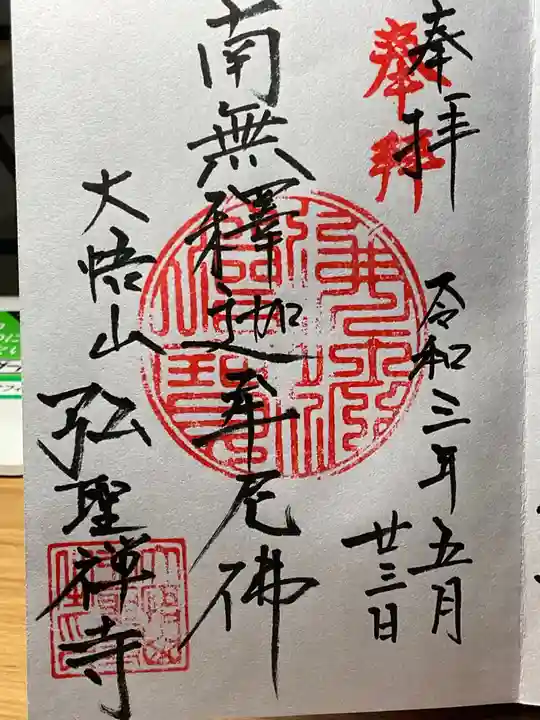 奉拝
奉拝
令和三年五月
廿三日
南無釋迦牟尼佛
大悟山
弘聖禅寺